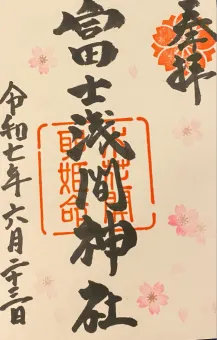 奉拝
富士浅間神社
令和七年六月二十三日